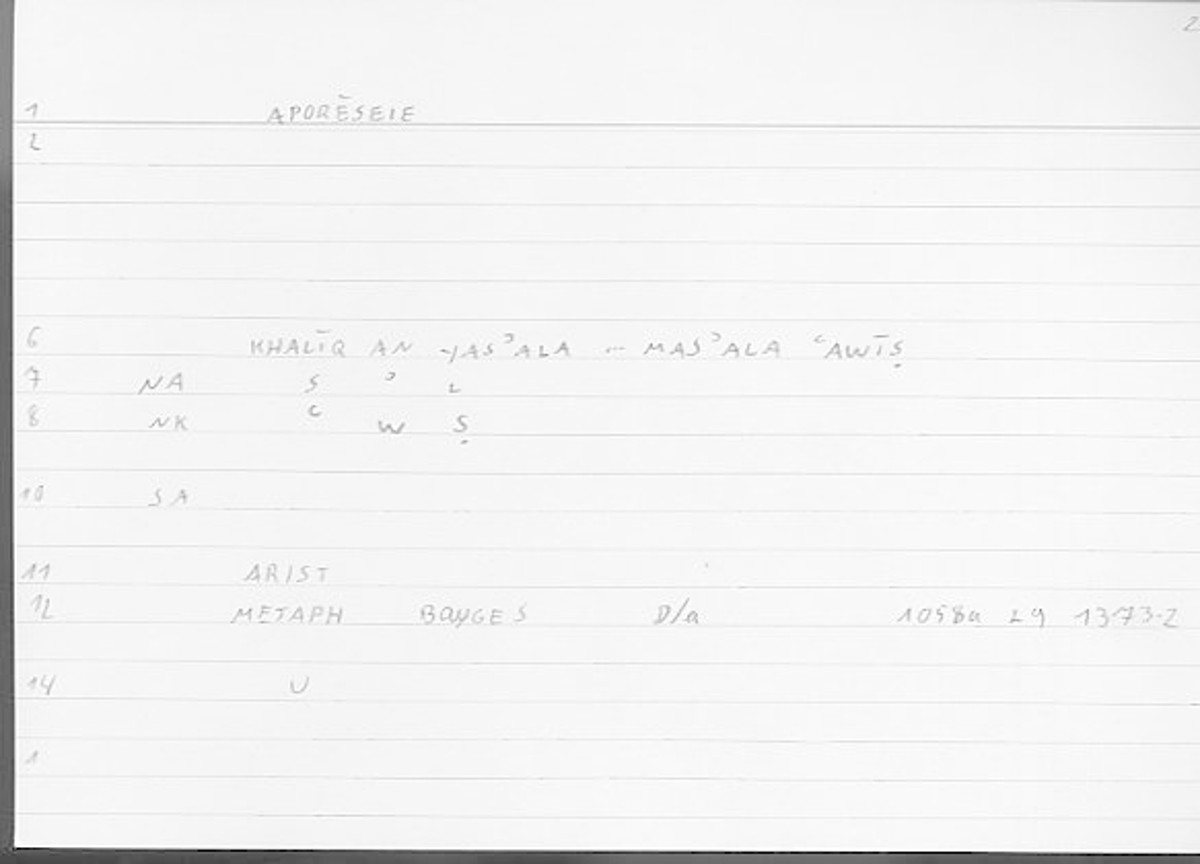 2
1 APORĒSEIE
2
6 KHALĪQ AN YASʾALA -- MASʾALA ʿAWĪṢ
7 NA S ʾ L
8 NK ʿ W Ṣ
10 SA
11 ARIST
12 METAPH BOUYGES D/a 1058a 29 1373-2
14 U
1